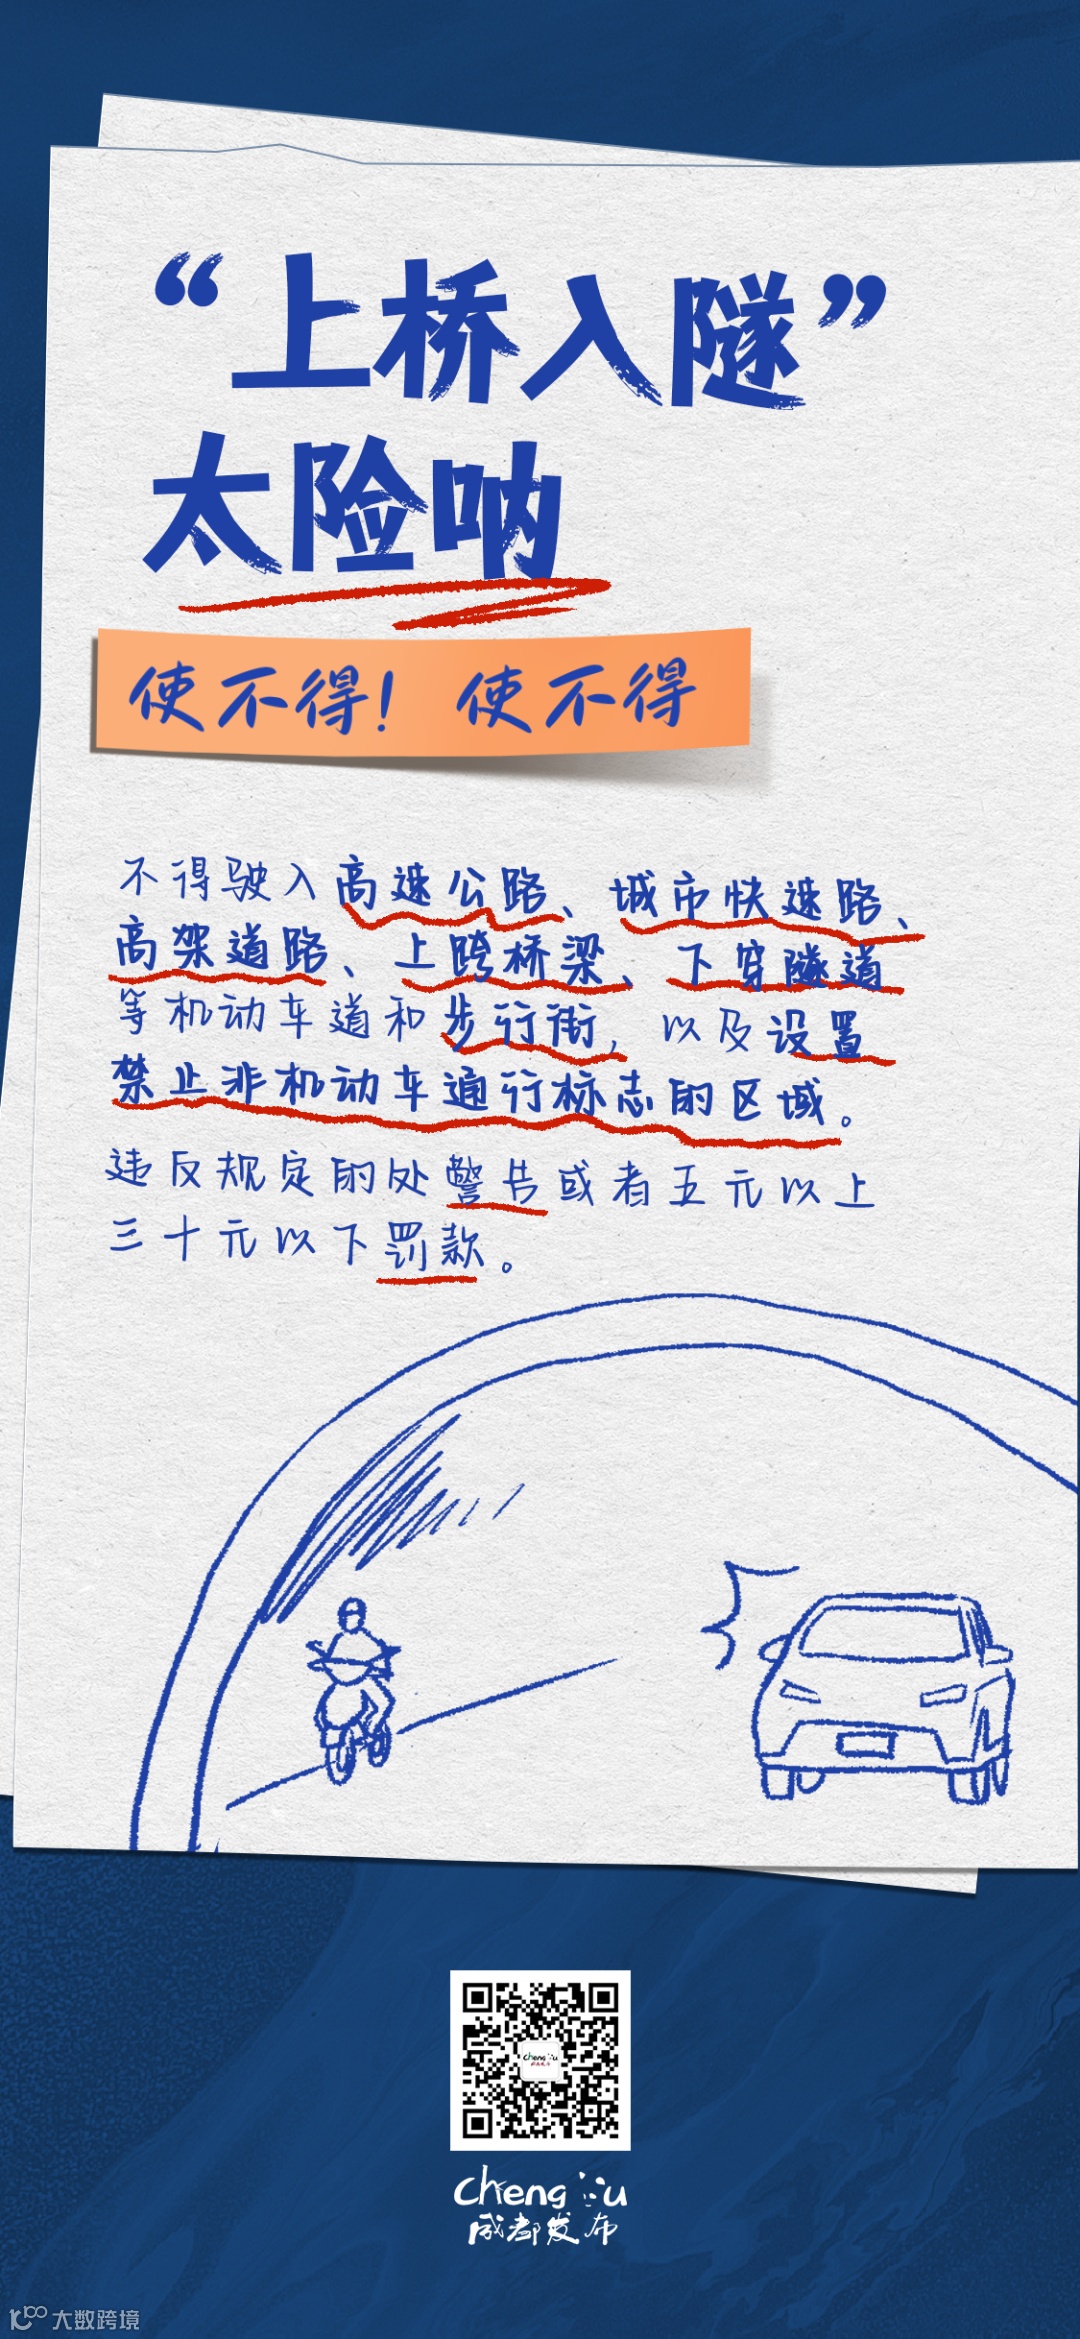 “上桥入隧”
太险呐
使不得! 使不得
不得驶入高速公路、城市快速路、
高架道路、上跨桥梁、下穿隧道
等机动车道和步行街,以及设置
禁止非机动车通行标志的区域。
违反规定的处警告或者五元以上
三十元以下罚款。
Chengdu
成都发布
大数跨境